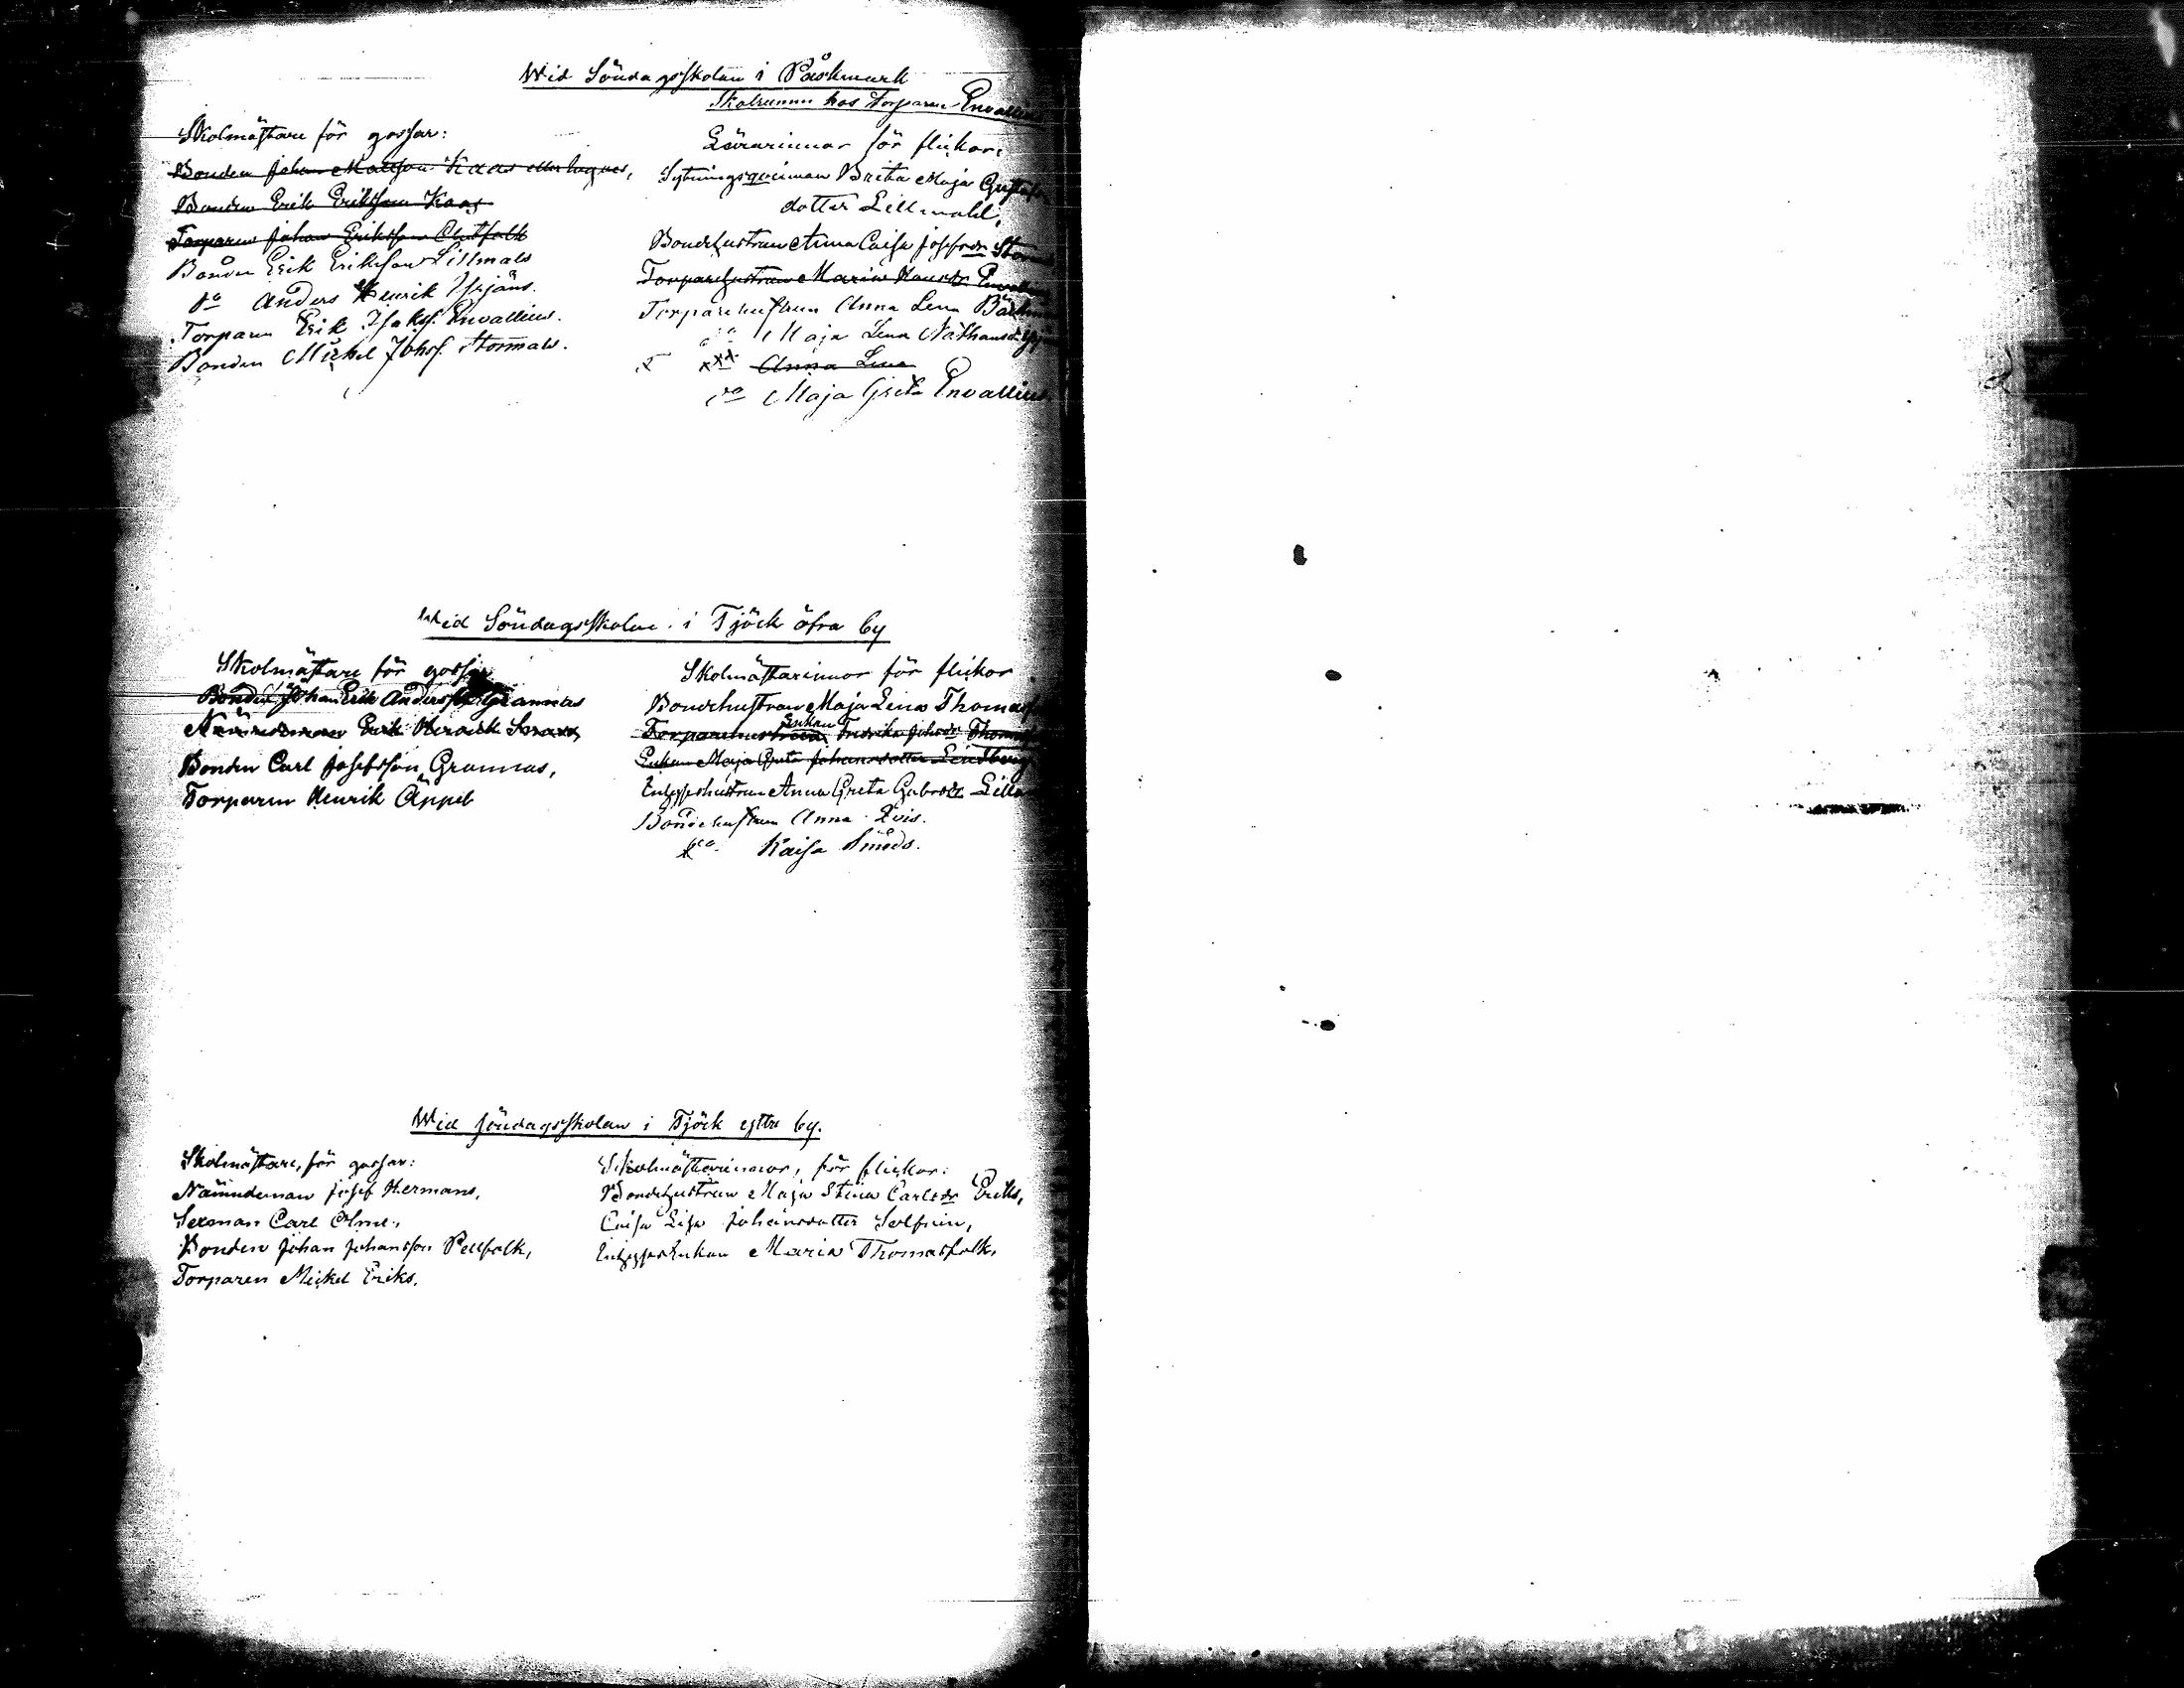 Wid Söndagsskolan i Påskmark
Skolrummet hos Torparen Envallius
Skolmästare för gossar:
Bonden Johan Mattsson Kaas eller
Bonden Erik Eriksson Kaas
Torparen Johan Eriksson
Bonden Erik Eriksson Lillmåls
do Anders Henrik Yrjäns.
Torparen Erik Isakss. Envallius.
Bonden Mickel Johss. Stormåls.
Lärarinnor för flickor:
Sytningsqvinnan Brita Maja Gustafs
dotter Lillmåhl,
Bondehustrun Anna Caisa Josefsdr
Torparehustrun Maria Hansdr
Torparehustrun Anna Lena
Maja Lena Nathansd.
Anna Lena
do Maja Greta Envallius
Wid Söndagsskolan i Tjöck öfra by
Skolmästare för gossar
Bonden Johan Erik Anderss. Grannas
Nämndeman Erik Henrik
Bonden Carl Josefsson Grannas,
Torparen Henrik Äppel
Skolmästarinnor för flickor
Bondehustrun Maja Lena
Enkan
Torparehustrun Fredrika Johsdr
Enkan Maja Greta Johansdotter Lindberg
Inhyseshustrun Anna Greta Gabrsdr
Bondehustrun Anna
do. Kaisa Smeds.
Wid söndagsskolan i Tjöck yttre by.
Skolmästare, för gossar:
Nämndeman Josef Hermans,
Sexman Carl Olms.,
Bonden Johan Johansson Pellfolk,
Torparen Mickel Eriks.
Skolmästarinnor, för flickor:
Bondehustrun Maja Stina Carlsdr Eriks,
Caisa Lisa Johansdotter
Inhysesenkan Maria Thomasfolk.